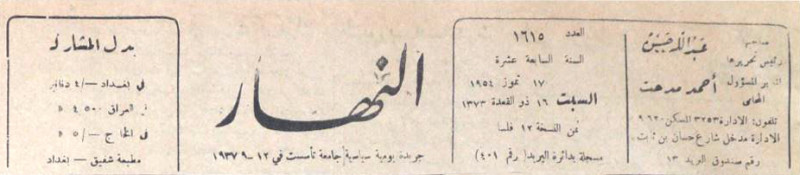 صاحبها
عبد الله حسن
رئيس تحريرها
المدير المسؤول
أحمد مدحت
المحامي
تلفون: الادارة ٣٢٥٣ المسكن ٩٦٢٠
الادارة مدخل شارع حسان بن ثابت
رقم صندوق البريد ١٣
العدد ١٦١٥
السنة السابعة عشرة
١٧ تموز ١٩٥٤
السبت ١٦ ذو القعدة ١٣٧٣
ثمن النسخة ١٢ فلسا
مسجلة بدائرة البريد (رقم ٤٠١)
النهار
جريدة يومية سياسية جامعة تأسست في ١٢-٩-١٩٣٧
بدل المشاركة
في بغداد —/٤ دنانير
في العراق ٤٥٠٠ »
في الخارج —/٥ »
مطبعة شفيق - بغداد